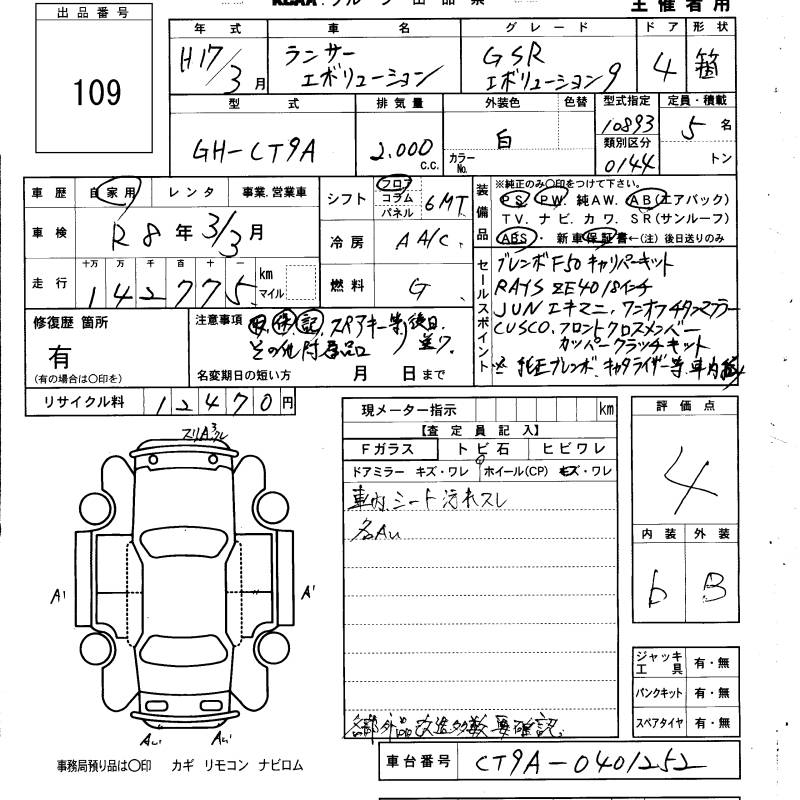 出品番号
109
主催者用
年式 車名 グレード ドア 形状
H17/3月 ランサーエボリューション GSRエボリューション9 4 箱
型式 排気量 外装色 色替 型式指定 定員・積載
GH-CT9A 2.000 C.C. 白 カラーNo. 10893 5名
類別区分
0144 トン
車歴 自家用 レンタ 事業.営業車
シフト フロア コラム パネル 6MT
装備品
※純正のみ○印をつけて下さい。
PS PW 純AW. AB(エアバック)
TV. ナビ. カワ. SR(サンルーフ)
ABS・ 新車保証書←(注) 後日送りのみ
車検 R8年3/3月
冷房 AA/C.
走行 十万 万 千 百 十 一
142775 km マイル
燃料 G
セールスポイント
ブレンボF50キャリパーキット
RAYS ZE40 18インチ
JUNエキマニ.ワンオフチタンマフラー
CUSCO.フロントクロスメンバー
カッパークラッチキット
※純正ブレンボ.キャタライザー等 車内
修復歴 箇所
有
(有の場合は○印を)
注意事項 取 件 記 スペアキー等後日
その他付属品
名変期日の短い方 月 日まで
リサイクル料 12470円
現メーター指示 km
【査定員記入】
Fガラス トビ石 ヒビワレ
ドアミラー キズ・ワレ ホイール(CP) キズ・ワレ
車内.シート汚れスレ
各AU
各部外品 改造多数 要確認.
評価点
4
内装 外装
b B
スリA3
A' A'
ジャッキ工具 有・無
パンクキット 有・無
スペアタイヤ 有・無
事務局預り品は○印 カギ リモコン ナビロム
車台番号 CT9A-0401252